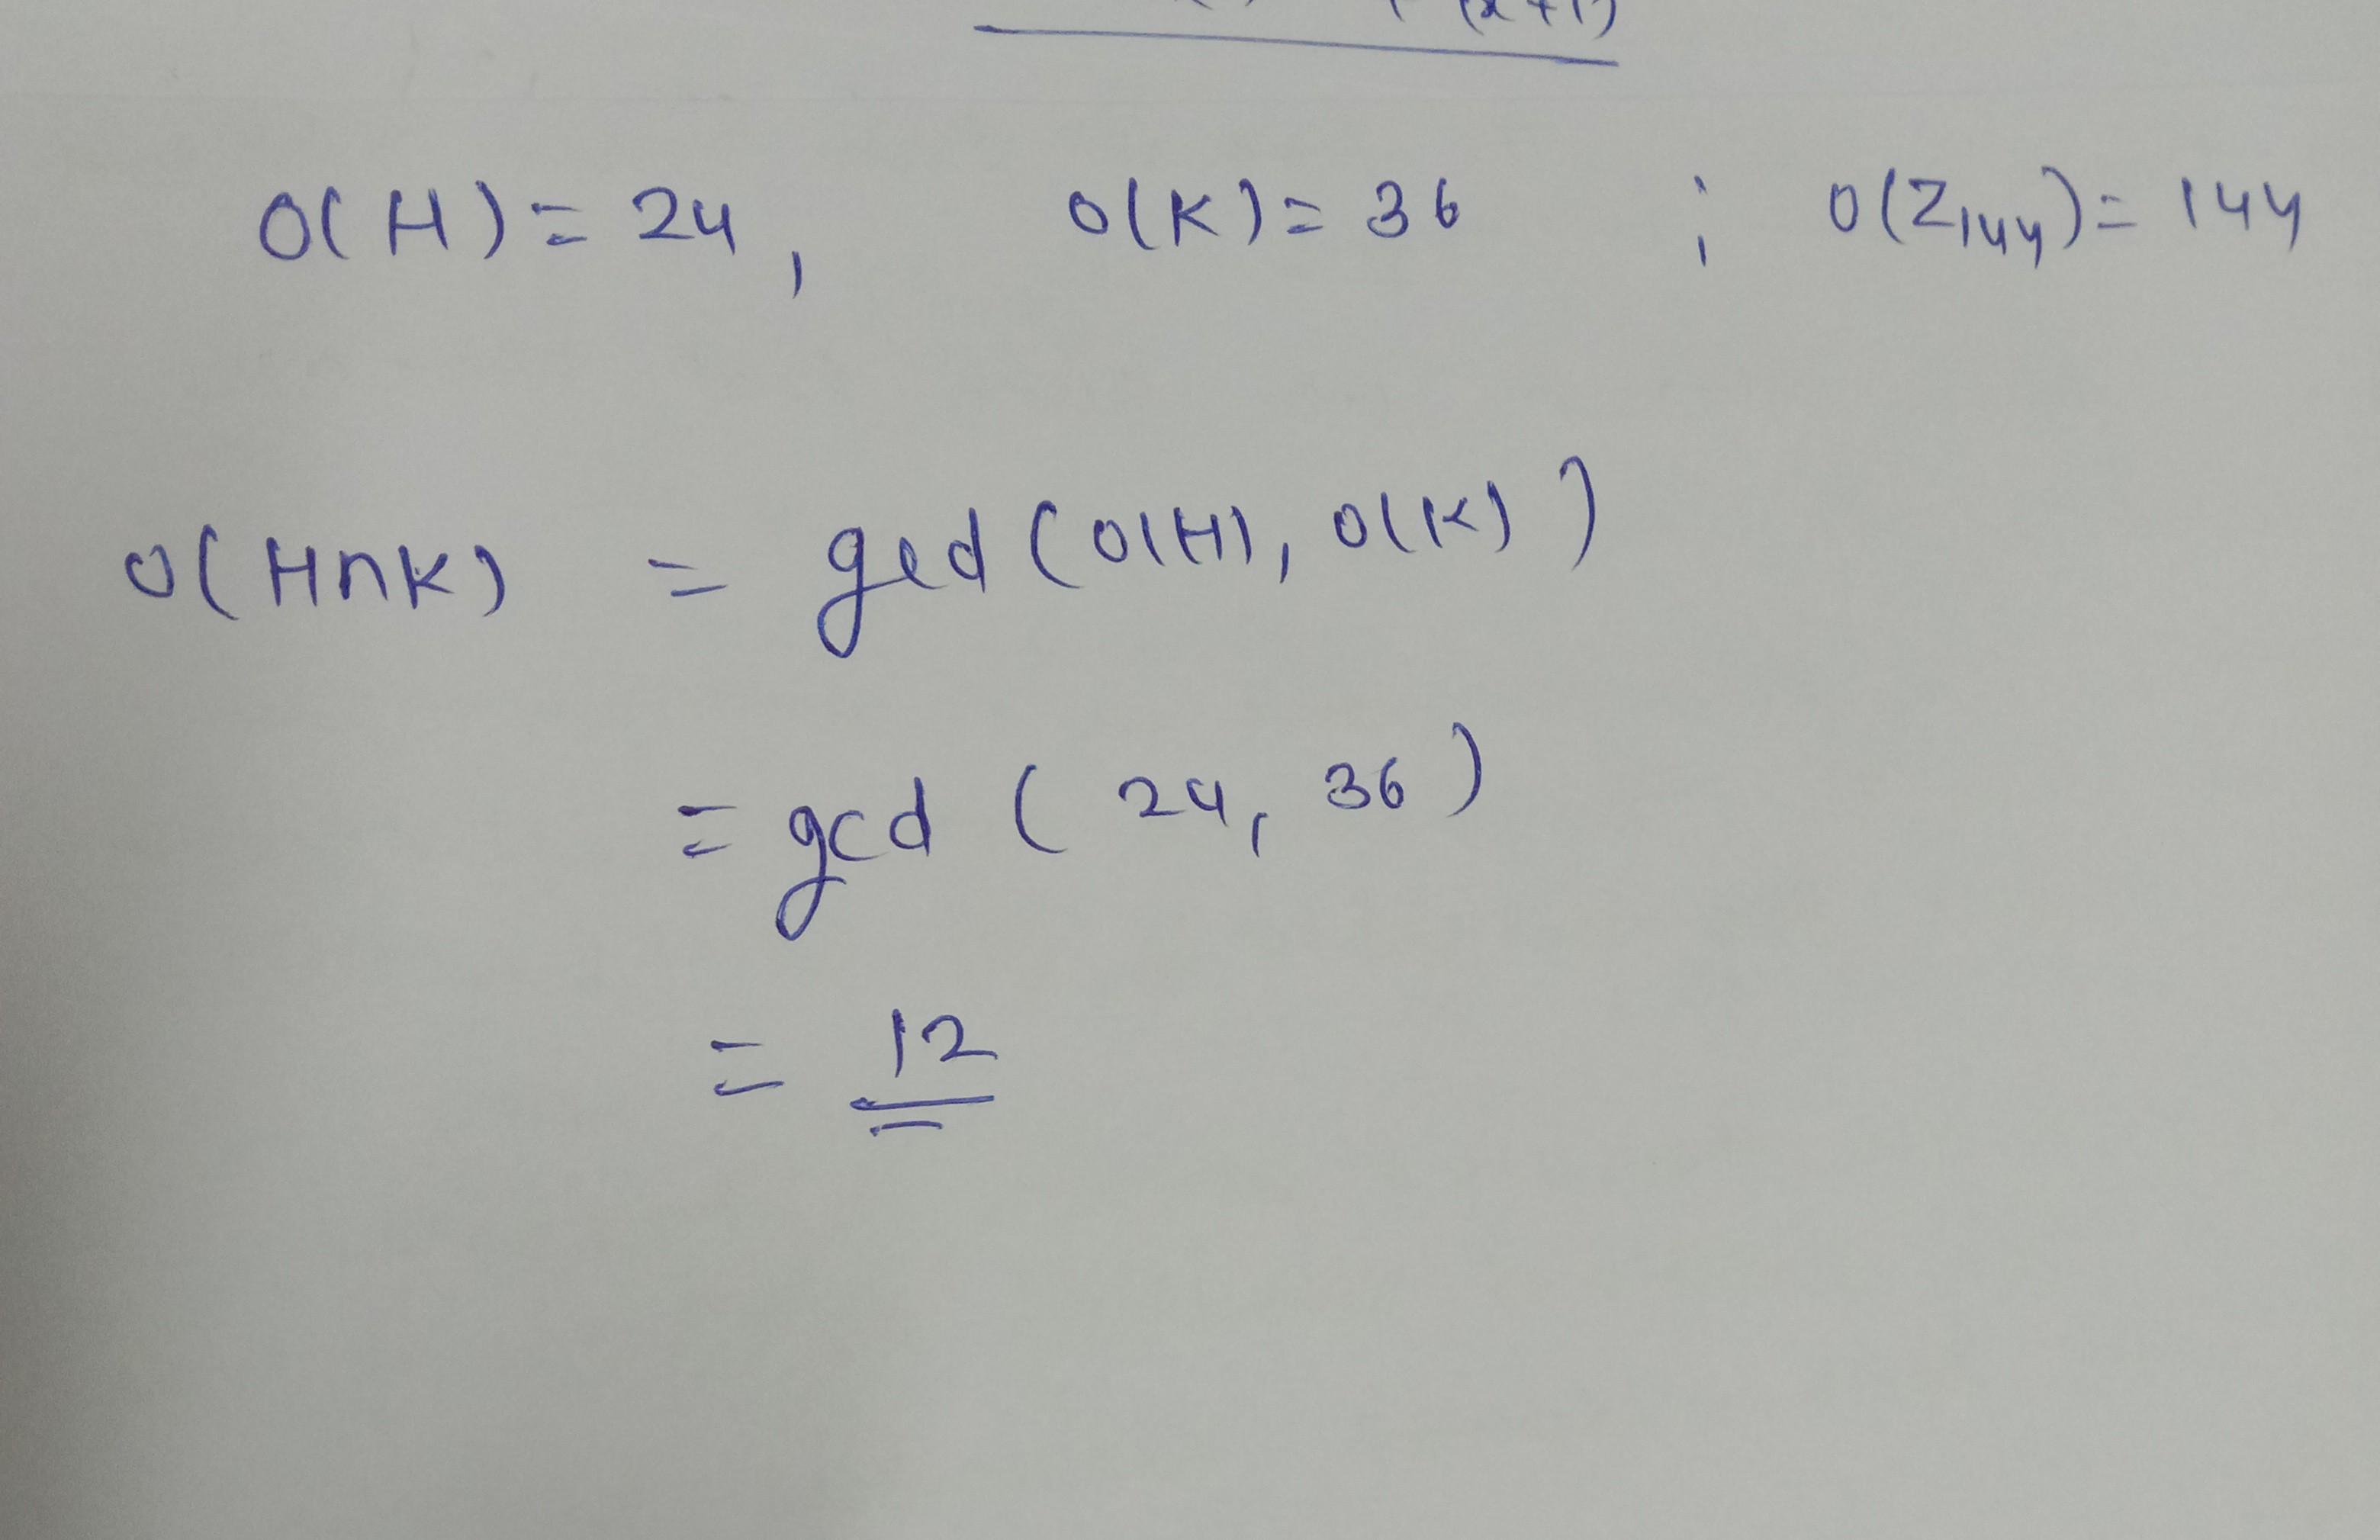 (x+1)
O(H) = 24, O(K) = 36 ; O(Z₁₄₄) = 144
O(H∩K) = gcd (O(H), O(K))
= gcd (24, 36)
= 12